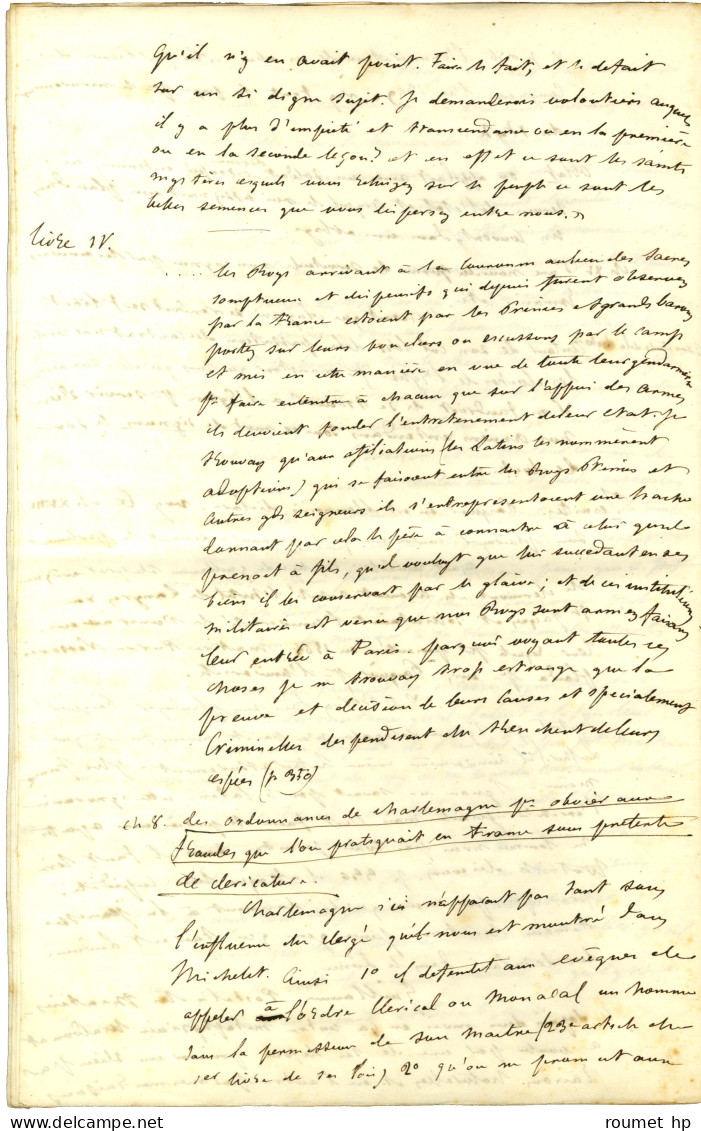 Qu'il n'y en avait point. Faire le fait, et le defait
sur un si digne sujet. Je demanderois voloutiers auquel
il y a plus d'impieté et transcendance ou en la première
ou en la seconde leçon? et en effet ce sont les saints
mystères esquels vous sur le peuple ce sont les
belles semences que vous dispersez entre nous. »
Livre IV.
.... les Roys arrivant à la couronne au lieu des Sacres
somptueux et dispensifs qui depuis furent observez
par la France estoient par les Princes et grands barons
portez sur leurs boucliers ou escussons par le camp
et mis en cette manière en vue de toute leur gendarmerie
pr faire entendre à chacun que sur l'appui des armes
ils devoient fonder l'entretenement de leur estat. Je
trouvay qu'aux affiliations (les Latins les nommèrent
adoptions) qui se faisoient entre les Roys Princes et
autres gds seigneurs ils s'entrepresentoient une hache
donnant par cela le père à connaitre à celui qu'il
prenoit à fils, qu'il vouloyt que lui succedant en ses
biens il les conservast par le glaive; et de ces institutions
militaires est venu que nos Roys sont armez faisans
leur entrée à Paris. parquoi voyant toutes ces
choses je ne trouvay trop estrange que la
preuve et decision de leurs causes et specialement
Criminelles despendissent du trenchent de leurs
espées (p 350)
ch 8. des ordonnances de Charlemagne pr obvier aux
fraudes que l'on pratiquait en France sous pretexte
de clericature.
Charlemagne ici n'apparait pas tant sous
l'influence du clergé qu'il nous est montré dans
Michelet. Ainsi 1o il defendit aux evêques de
appeler à l'ordre Clerical ou Monacal un homme
sans la permission de son maitre (23e article du
1er livre de ses lois) 2o qu'on ne promut aux
© roumet hp